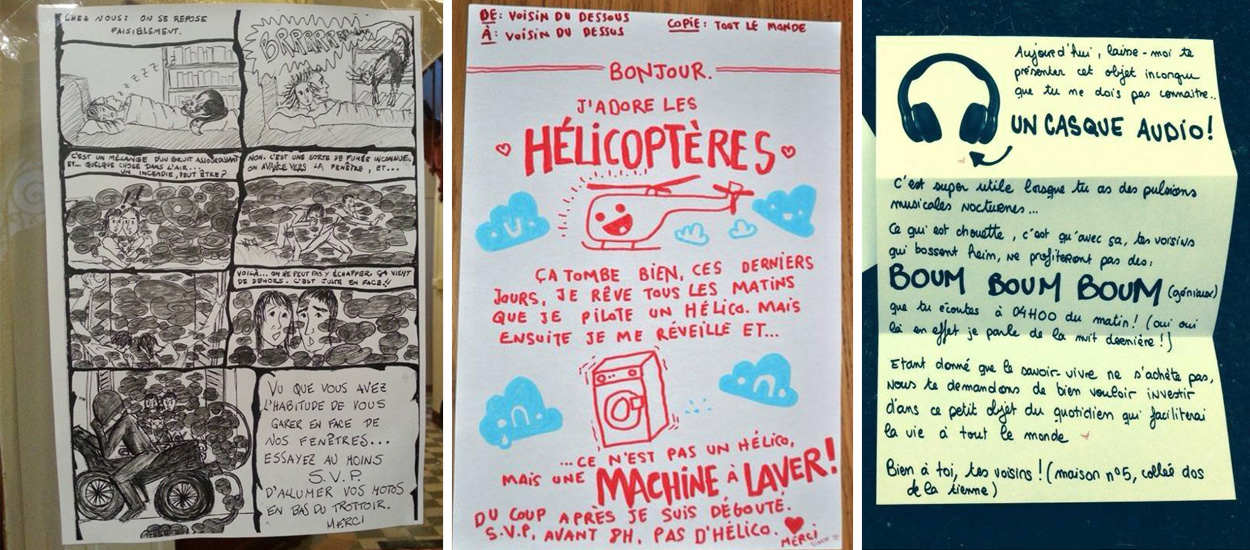 CHEZ NOUS: ON SE REPOSE
PAISIBLEMENT.
ZZZZZZ
BRRRRRR
C'EST UN MÉLANGE D'UN BRUIT ASSOURDISSANT
ET... QUELQUE CHOSE DANS L'AIR...
UN INCENDIE, PEUT ÊTRE?
NON. C'EST UNE SORTE DE FUMÉE INCONNUE.
ON AVANCE VERS LA FENÊTRE, ET...
VOILÀ... ON NE PEUT PAS Y ÉCHAPPER. ÇA VIENT
DE DEHORS. C'EST JUSTE EN FACE!!
VU QUE VOUS AVEZ
L'HABITUDE DE VOUS
GARER EN FACE DE
NOS FENÊTRES...
ESSAYEZ AU MOINS
S.V.P.
D'ALLUMER VOS MOTOS
EN BAS DU TROTTOIR.
MERCI
DE: VOISIN DU DESSOUS
À: VOISIN DU DESSUS
COPIE: TOUT LE MONDE
BONJOUR.
J'ADORE LES
HÉLICOPTÈRES
ÇA TOMBE BIEN, CES DERNIERS
JOURS, JE RÊVE TOUS LES MATINS
QUE JE PILOTE UN HÉLICO. MAIS
ENSUITE JE ME RÉVEILLE ET...
...CE N'EST PAS UN HÉLICO,
MAIS UNE MACHINE À LAVER!
DU COUP APRÈS JE SUIS DÉGOUTÉ.
S.V.P, AVANT 8H, PAS D'HÉLICO.
MERCI
Aujourd'hui, laisse-moi te
présenter cet objet inconnu
que tu ne dois pas connaitre..
UN CASQUE AUDIO!
C'est super utile lorsque tu as des pulsions
musicales nocturnes...
Ce qui est chouette, c'est qu'avec ça, tes voisins
qui bossent hein, ne profiteront pas des:
BOUM BOUM BOUM (géniaux)
que tu écoutes à 04H00 du matin! (oui oui
là en effet je parle de la nuit dernière!)
Etant donné que le savoir-vivre ne s'achète pas,
nous te demandons de bien vouloir investir
dans ce petit objet du quotidien qui facilitera
la vie à tout le monde
Bien à toi, tes voisins! (maison n°5, collée dos
de la tienne)